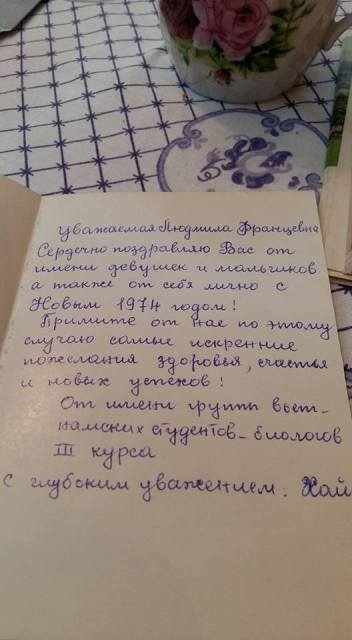 Уважаемая Людмила Францевна
Сердечно поздравляю Вас от
имени девушек и мальчиков
а также от себя лично с
Новым 1974 годом!
Примите от нас по этому
случаю самые искренние
пожелания здоровья, счастья
и новых успехов!
От имени групп вьет-
намских студентов-биологов
III курса
С глубоким уважением: Хай